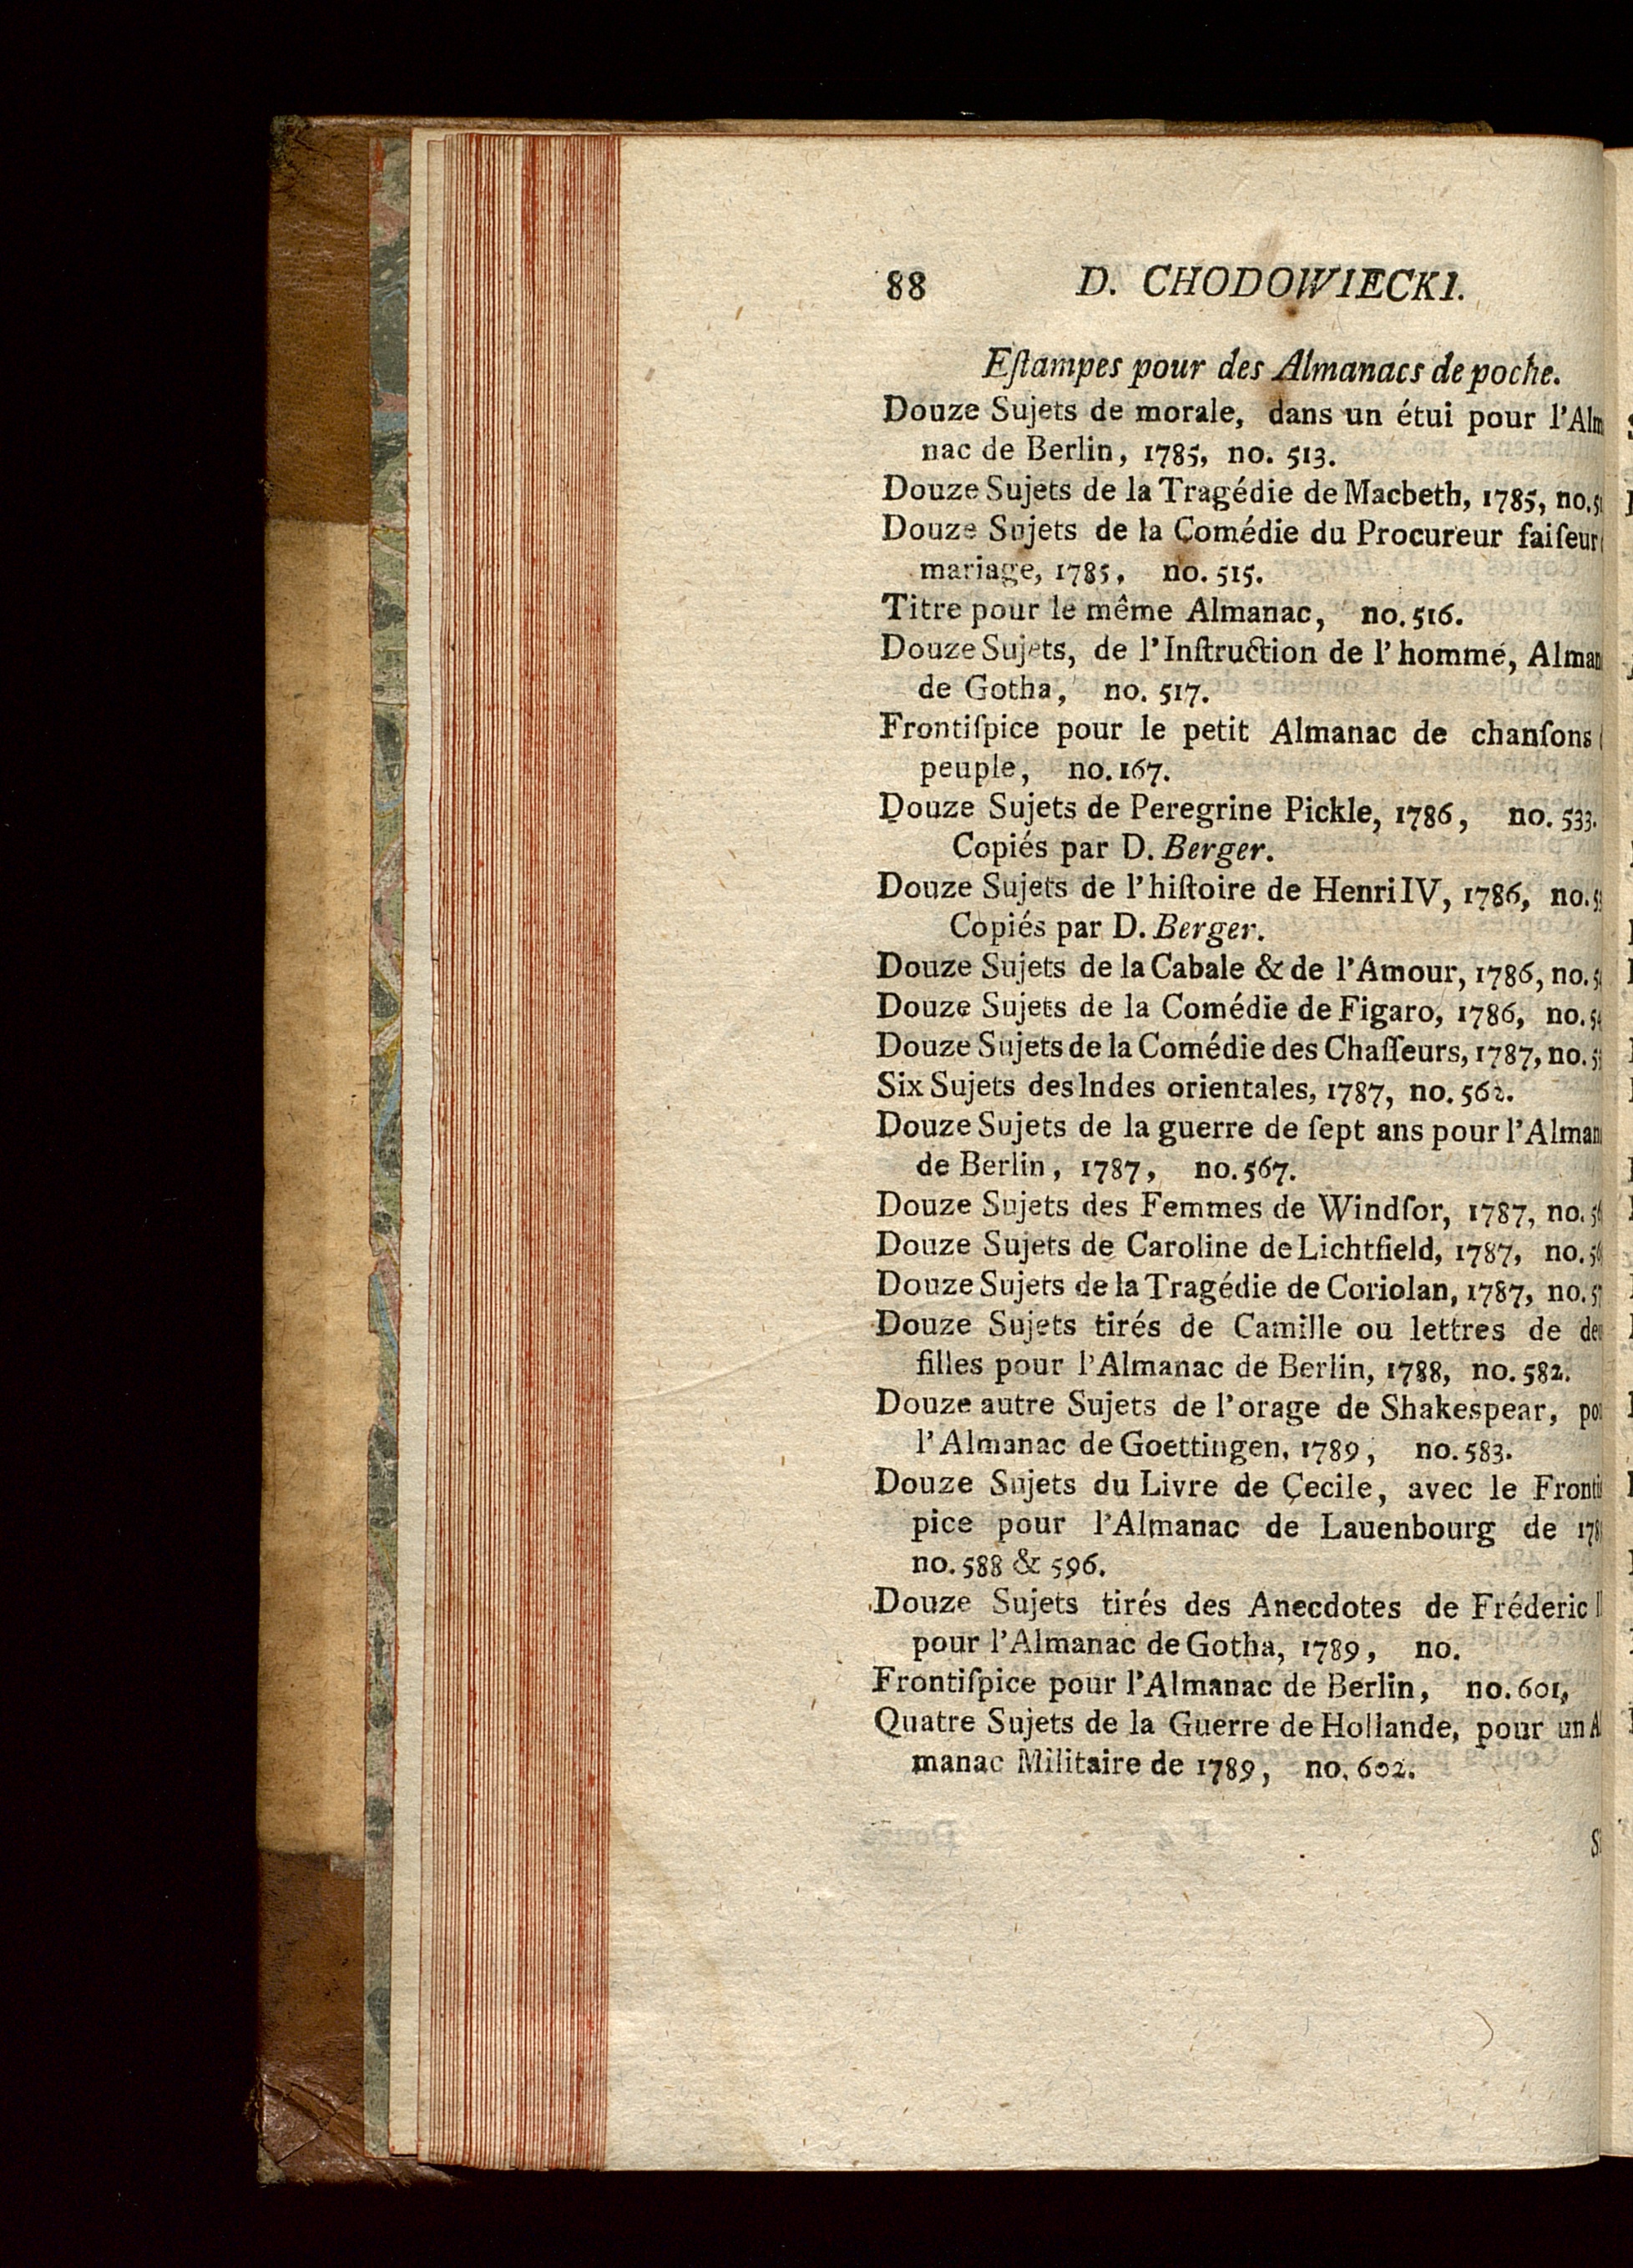 88 D. CHODOWIECKI.
Eſtampes pour des Almanacs de poche.
Douze Sujets de morale, dans un étui pour l'Alm
nac de Berlin, 1785, no. 513.
Douze Sujets de la Tragédie de Macbeth, 1785, no.
Douze Sujets de la Comédie du Procureur faiſeur
mariage, 1785, no. 515.
Titre pour le même Almanac, no. 516.
Douze Sujets, de l'Inſtruction de l'homme, Alman
de Gotha, no. 517.
Frontiſpice pour le petit Almanac de chanſons
peuple, no. 167.
Douze Sujets de Peregrine Pickle, 1786, no. 533.
Copiés par D. Berger.
Douze Sujets de l'hiſtoire de Henri IV, 1786, no.
Copiés par D. Berger.
Douze Sujets de la Cabale & de l'Amour, 1786, no.
Douze Sujets de la Comédie de Figaro, 1786, no.
Douze Sujets de la Comédie des Chaſſeurs, 1787, no.
Six Sujets des Indes orientales, 1787, no. 562.
Douze Sujets de la guerre de ſept ans pour l'Alman
de Berlin, 1787, no. 567.
Douze Sujets des Femmes de Windſor, 1787, no.
Douze Sujets de Caroline de Lichtfield, 1787, no.
Douze Sujets de la Tragédie de Coriolan, 1787, no.
Douze Sujets tirés de Camille ou lettres de de
filles pour l'Almanac de Berlin, 1788, no. 582.
Douze autre Sujets de l'orage de Shakespear, po
l'Almanac de Goettingen, 1789, no. 583.
Douze Sujets du Livre de Çecile, avec le Fronti
pice pour l'Almanac de Lauenbourg de 178
no. 588 & 596.
Douze Sujets tirés des Anecdotes de Fréderic
pour l'Almanac de Gotha, 1789, no.
Frontiſpice pour l'Almanac de Berlin, no. 601,
Quatre Sujets de la Guerre de Hollande, pour un A
manac Militaire de 1789, no. 602.